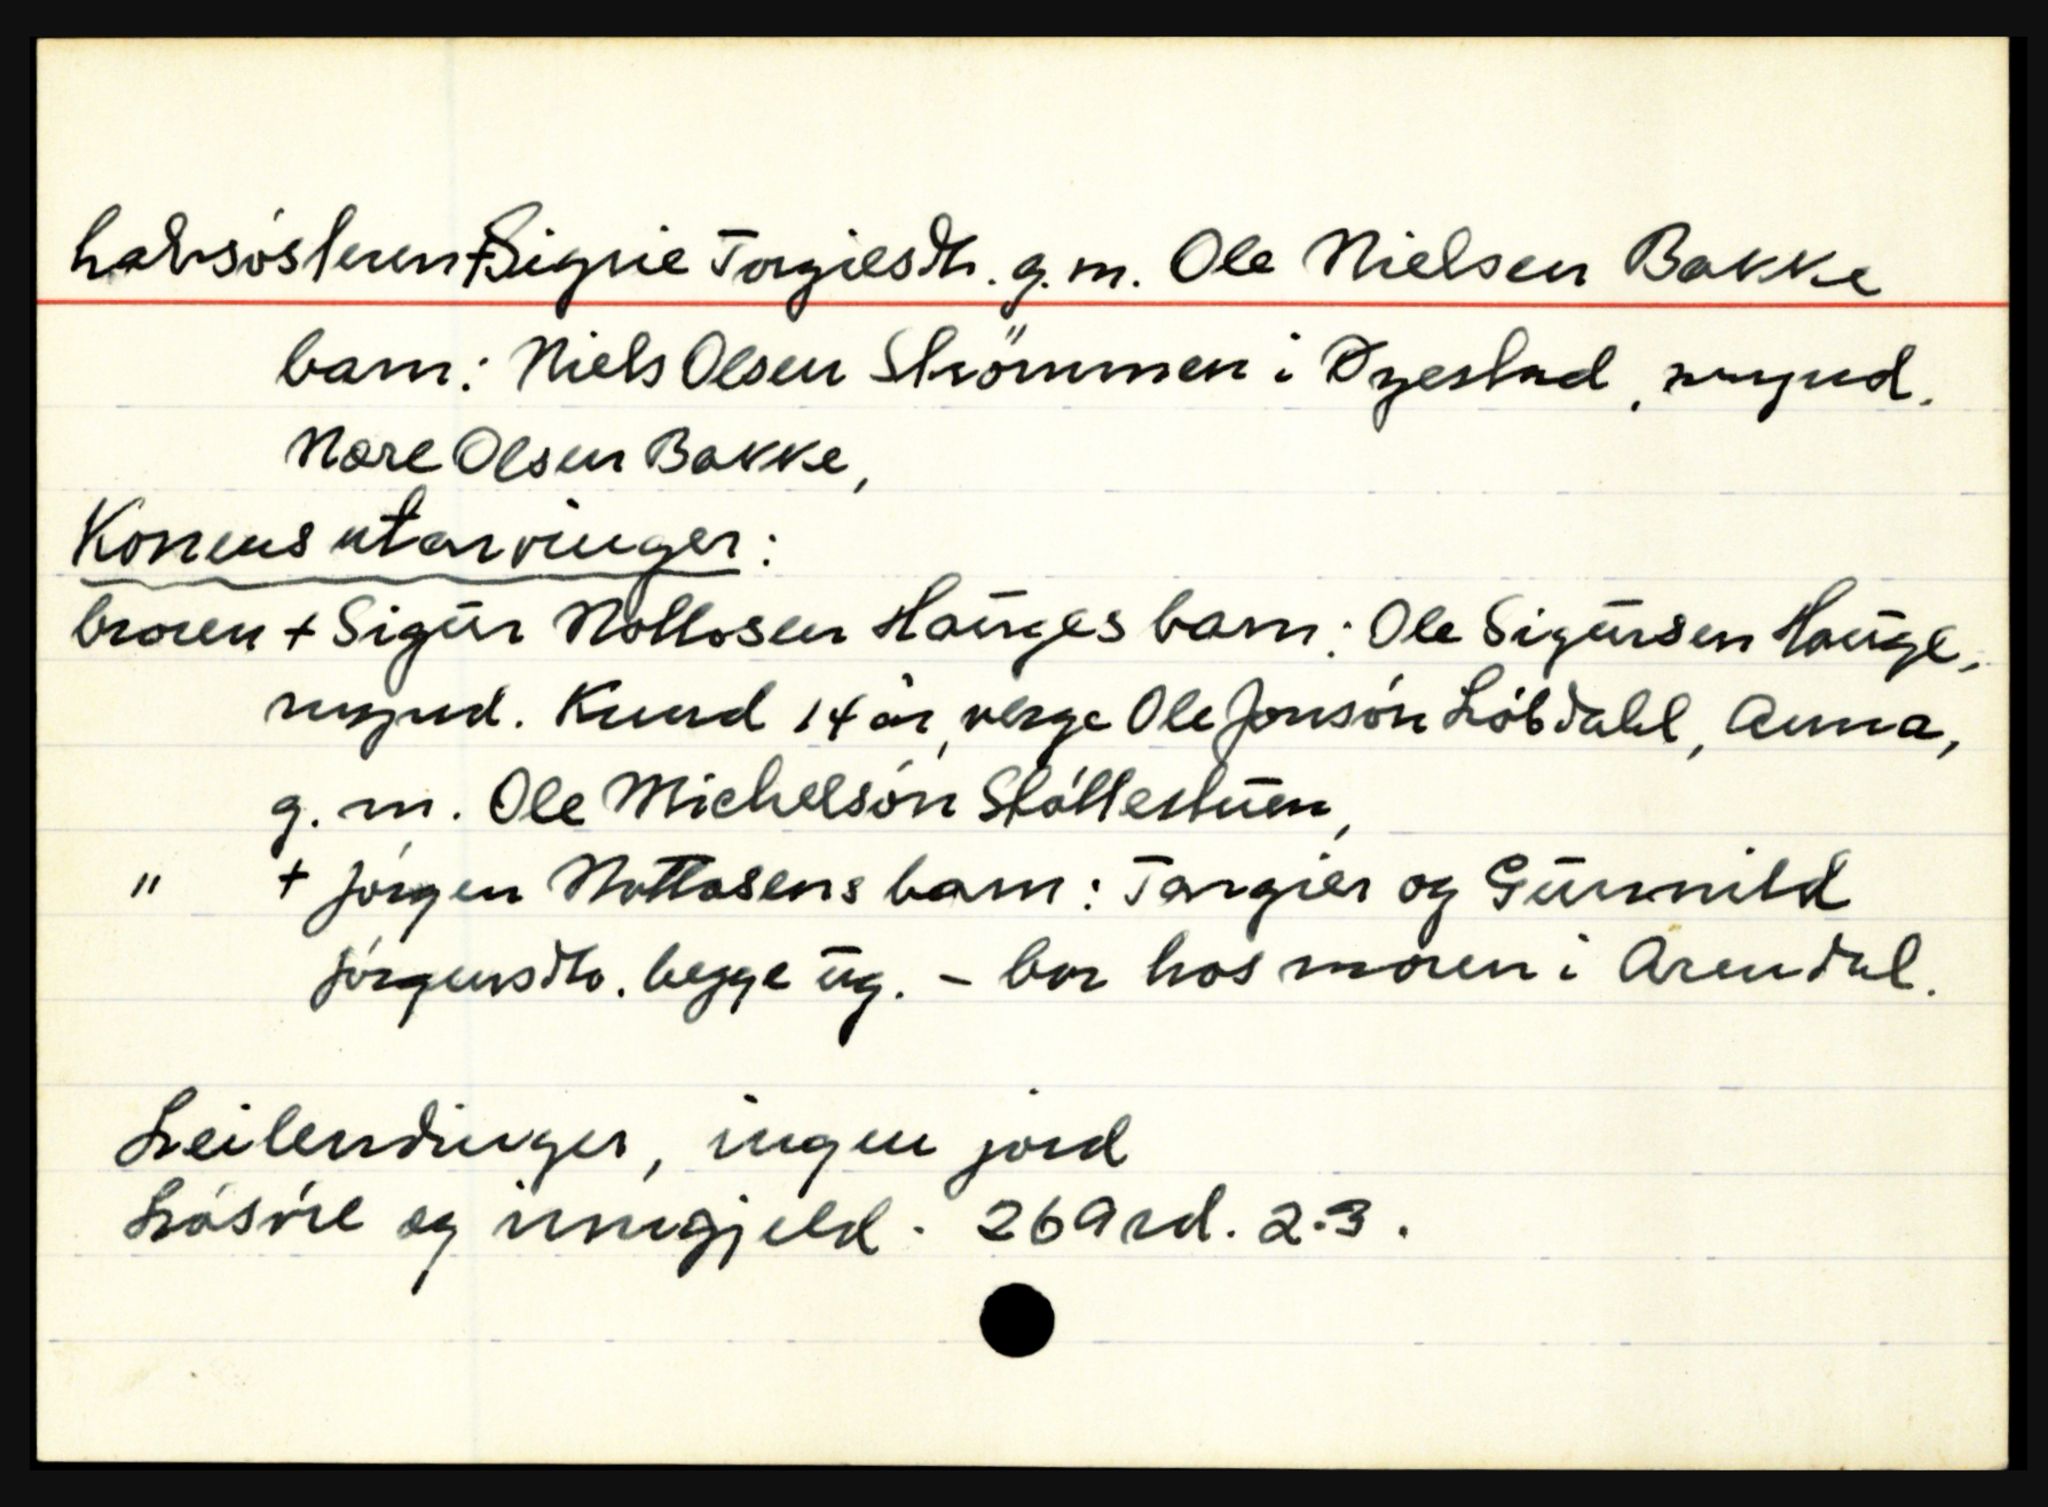 halvsøsteren + Signie Torgiesdtr. g.m. Ole Nielsen Bakke
barn: Niels Olsen Strömmen i Øyestad, mynd.
Nare Olsen Bakke,
Konens utarvinger:
broren + Sigur Nottosen Hauges barn: Ole Sigursen Hauge,
mynd. Knud 14 år, verge Ole Jonsøn Løbdahl, Anna,
g. m. Ole Michelsøn Støllestuen,
" + Jørgen Nottosens barn: Targier og Gunnild
Jørgensdtr. begge ug. - bor hos moren i Arendal.
Leilendinger, ingen jord
Løsøre og inngjeld. 269 rd. 2.3.